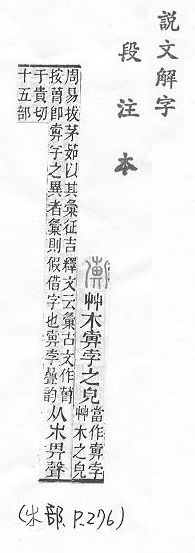 說文解字
段注本
艸木𠦪孛之皃
當作𠦪孛
艸木之皃
从𣎵畀聲
周易拔茅茹以其彙征吉釋文云彙古文作
按即𠦪字之異者彙則假借字也𠦪孛疊韵
于貴切
十五部
(𣎵部、P.276)